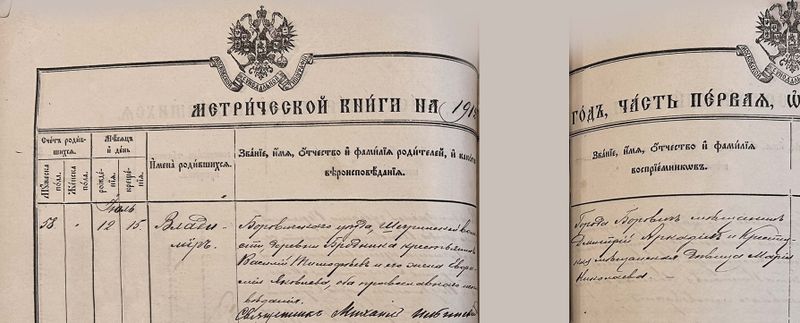 МЕТРИ́ЧЕСКОЙ КНИ́ГИ НА 191
ГО́ДЪ, ЧА́СТЬ ПЕ́РВАЯ, Ѡ
Счетъ родив-
шихся.
Мѣсяцъ
и день
Мужеска
пола.
Женска
пола.
рожде-
нія.
креще-
нія.
Имена родившихся.
Званіе, имя, отчество и фамилія родителей, и какого
вѣроисповѣданія.
Званіе, имя, отчество и фамилія
воспріемниковъ.
Іюль
58 " 12 15.
Влади-
міръ.
Боровичскаго уѣзда, волости
деревни крестьянинъ
Василій Тимофѣевъ и его жена
Яковлева, оба православнаго испо-
вѣданія.
Священникъ Михаилъ
Города Боровичъ мѣщанинъ
Дмитрій Аркадіевъ и
мѣщанская дѣвица Марія
Николаева.